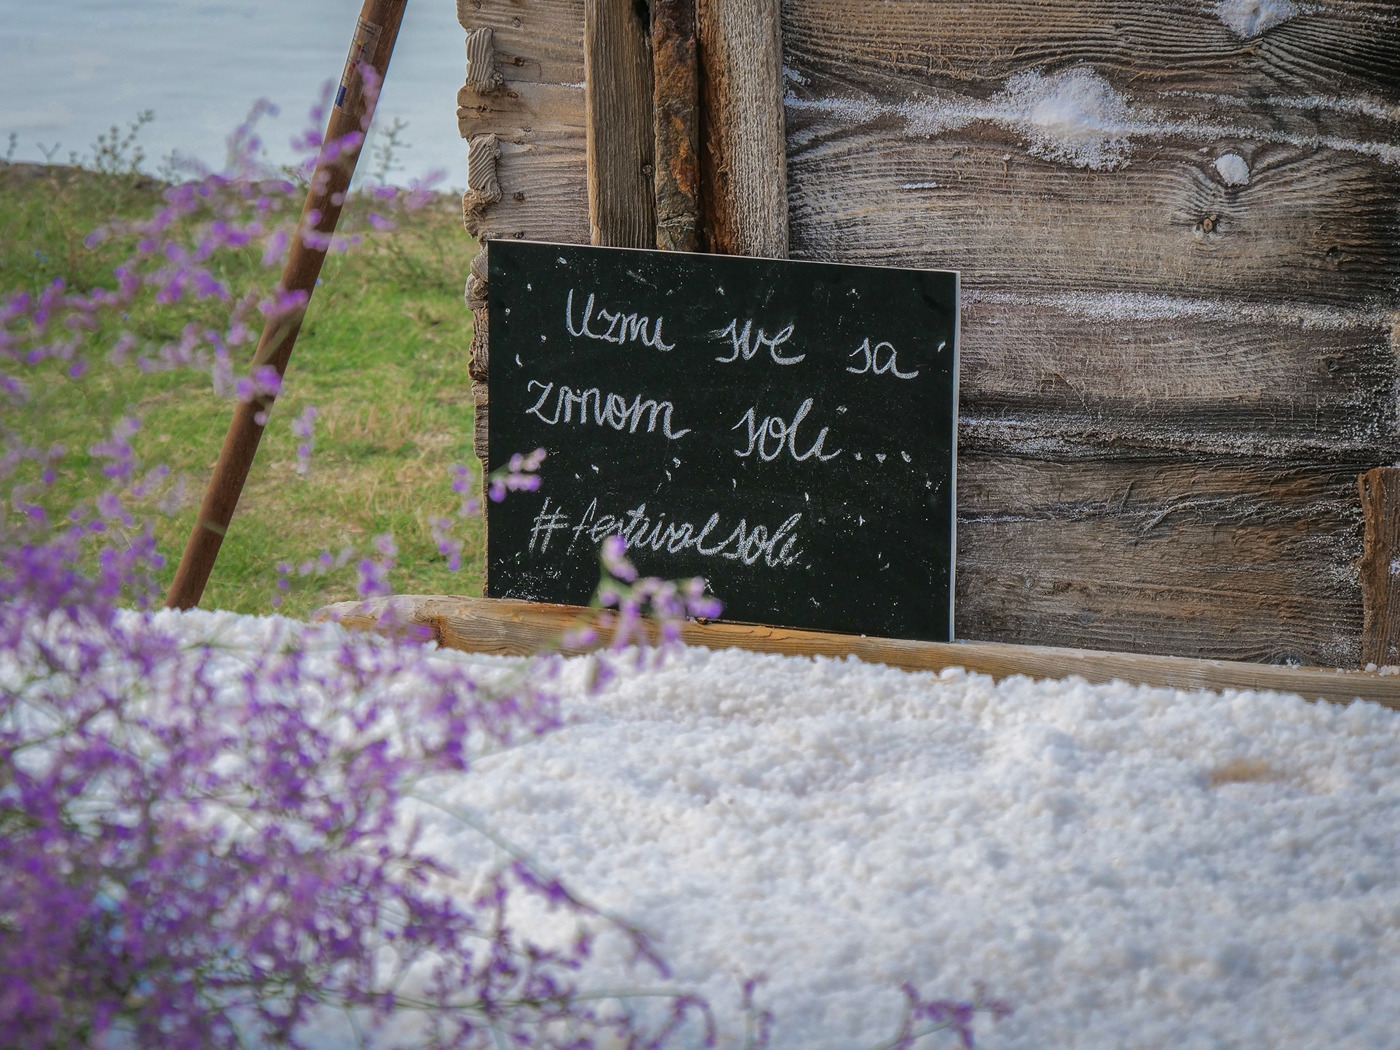 Uzmi sve sa
zrnom soli...
#festivalsoli